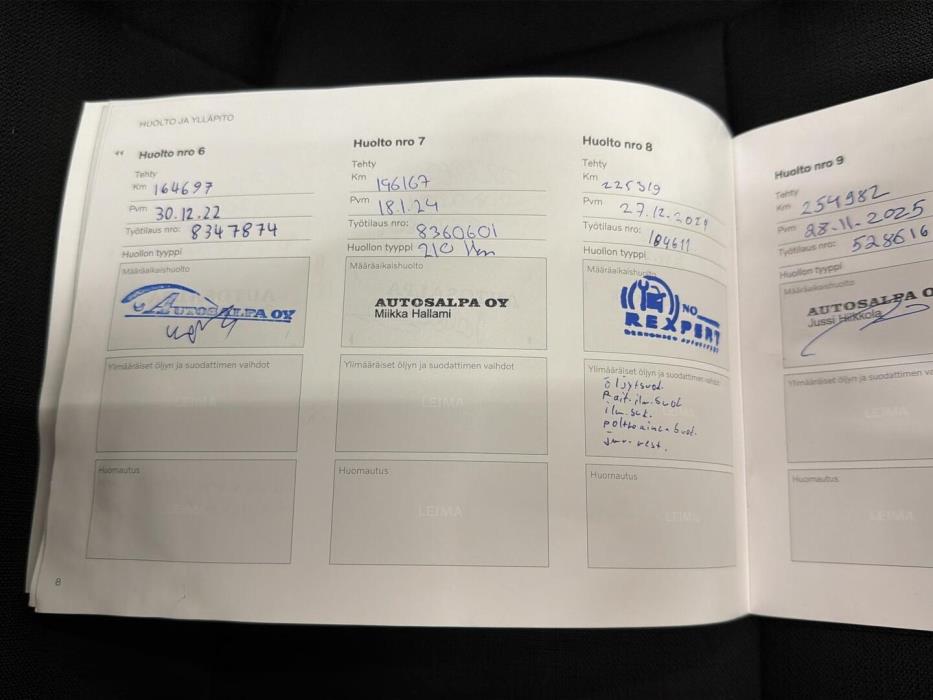 HUOLTO JA YLLÄPITO
Huolto nro 6
Tehty
Km 164697
Pvm 30.12.22
Työtilaus nro: 8347874
Huollon tyyppi
Määräaikaishuolto
AUTOSALPA OY
Ylimääräiset öljyn ja suodattimen vaihdot
LEIMA
Huomautus
LEIMA
8
Huolto nro 7
Tehty
Km 196167
Pvm 18.1.24
Työtilaus nro: 8360601
Huollon tyyppi 210 Km
Määräaikaishuolto
AUTOSALPA OY
Miikka Hallami
Ylimääräiset öljyn ja suodattimen vaihdot
LEIMA
Huomautus
LEIMA
Huolto nro 8
Tehty
Km 225319
Pvm 27.12.2024
Työtilaus nro: 184611
Huollon tyyppi
Määräaikaishuolto
NO
REXPERT
Ylimääräiset öljyn ja suodattimen vaihdot
öljytsuod.
Rait.ilm.suod
ilm.suk.
polttoaine suod.
jarr. nest.
Huomautus
LEIMA
Huolto nro 9
Tehty
Km 254982
Pvm 28-11-2025
Työtilaus nro: 528616
Huollon tyyppi
Määräaikaishuolto
AUTOSALPA O
Jussi Heikkola
Ylimääräiset öljyn ja suodattimen va
LEIMA
Huomautus
LEIMA